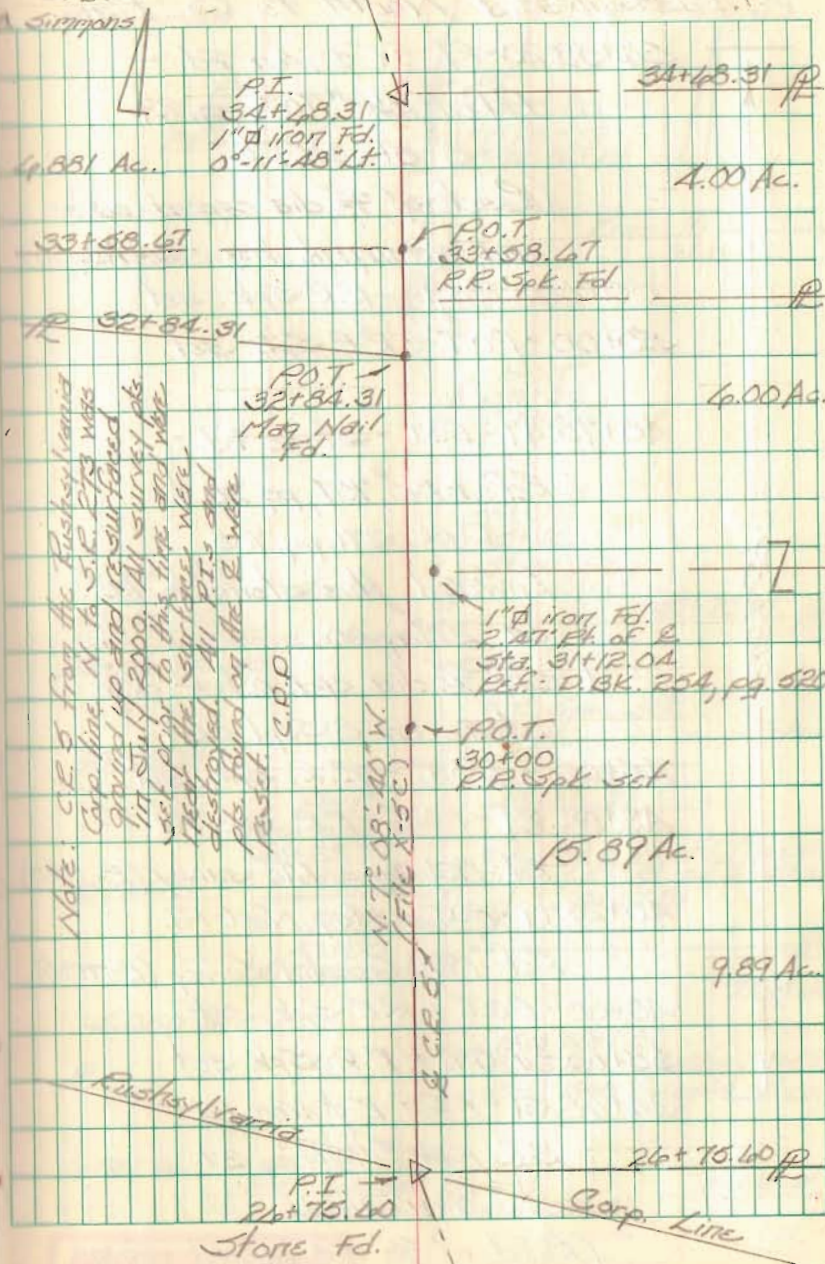 Simmons
P.I.
34+68.31
1"ø iron Fd.
0°-11'-48" Lt.
34+68.31 PL
4.00 Ac.
33+58.67
P.O.T.
33+58.67
R.R. Spk. Fd.
PL
PL 32+84.31
P.O.T.
32+84.31
Mag Nail
Fd.
6.00 Ac.
Note: C.R. 5 from the Rushsylvania
Corp. line N. to S.R. 273 was
ground up and resurfaced
in July 2000. All survey pts.
set prior to this time and were
near the surface were
destroyed. All P.I.s and
pts. found on the ℄ were
reset. C.D.D.
1"ø iron Fd.
2.47' Rt. of ℄
Sta. 31+12.04
Ref.: D.BK. 254, pg. 520
P.O.T.
30+00
R.R. Spk set
N. 7°-03'-40" W.
(File X-5C)
15.89 Ac.
9.89 Ac.
℄ C.R. 5
Rushsylvania
26+75.60 PL
P.I.
26+75.60
Stone Fd.
Corp. Line